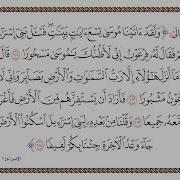 وَلَقَدْ ءَاتَيْنَا مُوسَىٰ تِسْعَ ءَايَٰتٍۭ بَيِّنَٰتٍۖ فَسْـَٔلْ بَنِىٓ
فَقَالَ لَهُۥ فِرْعَوْنُ إِنِّى لَأَظُنُّكَ يَٰمُوسَىٰ مَسْحُورًا ﴿١٠١﴾
مَآ أَنزَلَ هَٰٓؤُلَآءِ إِلَّا رَبُّ ٱلسَّمَٰوَٰتِ وَٱلْأَرْضِ بَصَآئِرَ وَإِنِّى
مَثْبُورًا ﴿١٠٢﴾ فَأَرَادَ أَن يَسْتَفِزَّهُم مِّنَ ٱلْأَرْضِ
مَعَهُۥ جَمِيعًا ﴿١٠٣﴾ وَقُلْنَا مِنۢ بَعْدِهِۦ لِبَنِىٓ إِسْرَٰٓءِيلَ ٱسْكُنُوا۟ ٱلْأَرْضَ
جَآءَ وَعْدُ ٱلْءَاخِرَةِ جِئْنَا بِكُمْ لَفِيفًا ﴿١٠٤﴾
الإسراء: